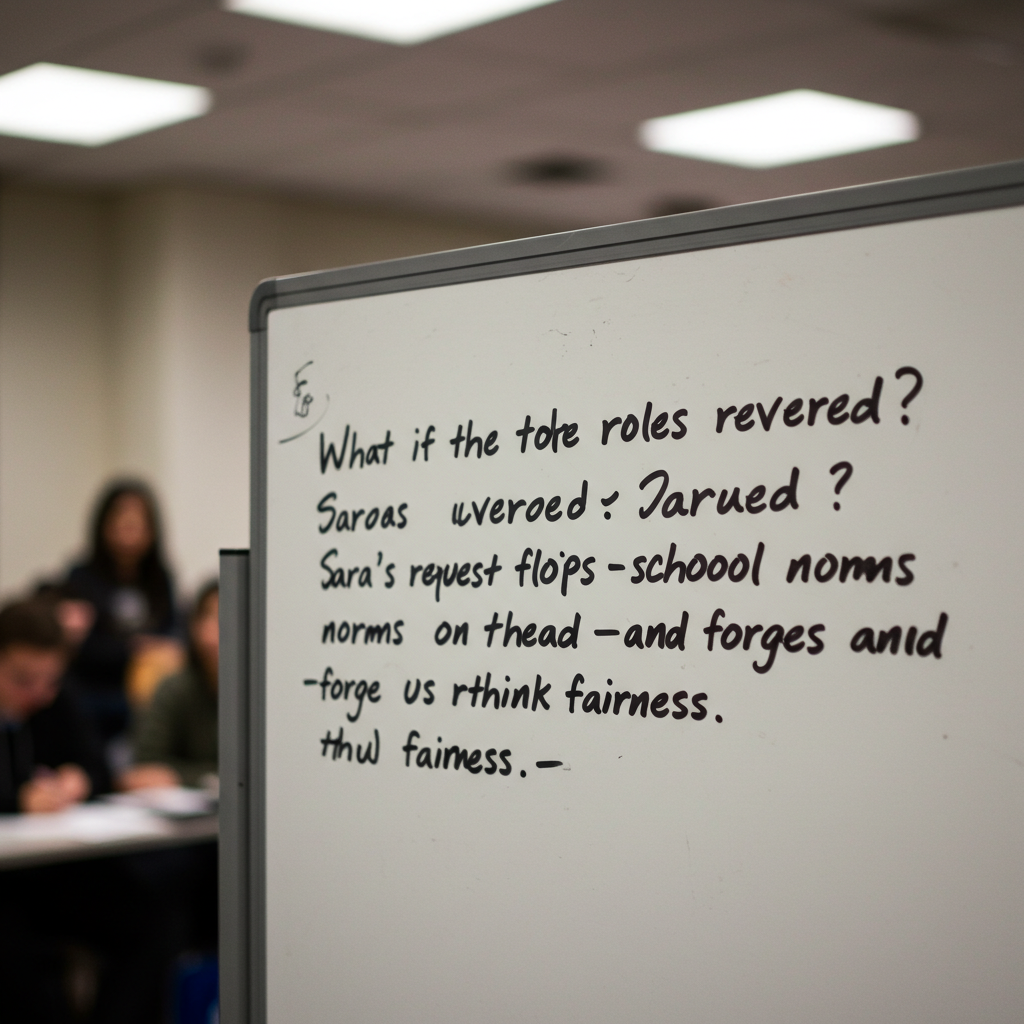 What if the tote roles revered?
Saroas uveroed: Jarued?
Sara's request flojps - schoool nomms
norms on thead - and forges anid
-forge us rthink fairness.
fairness. -